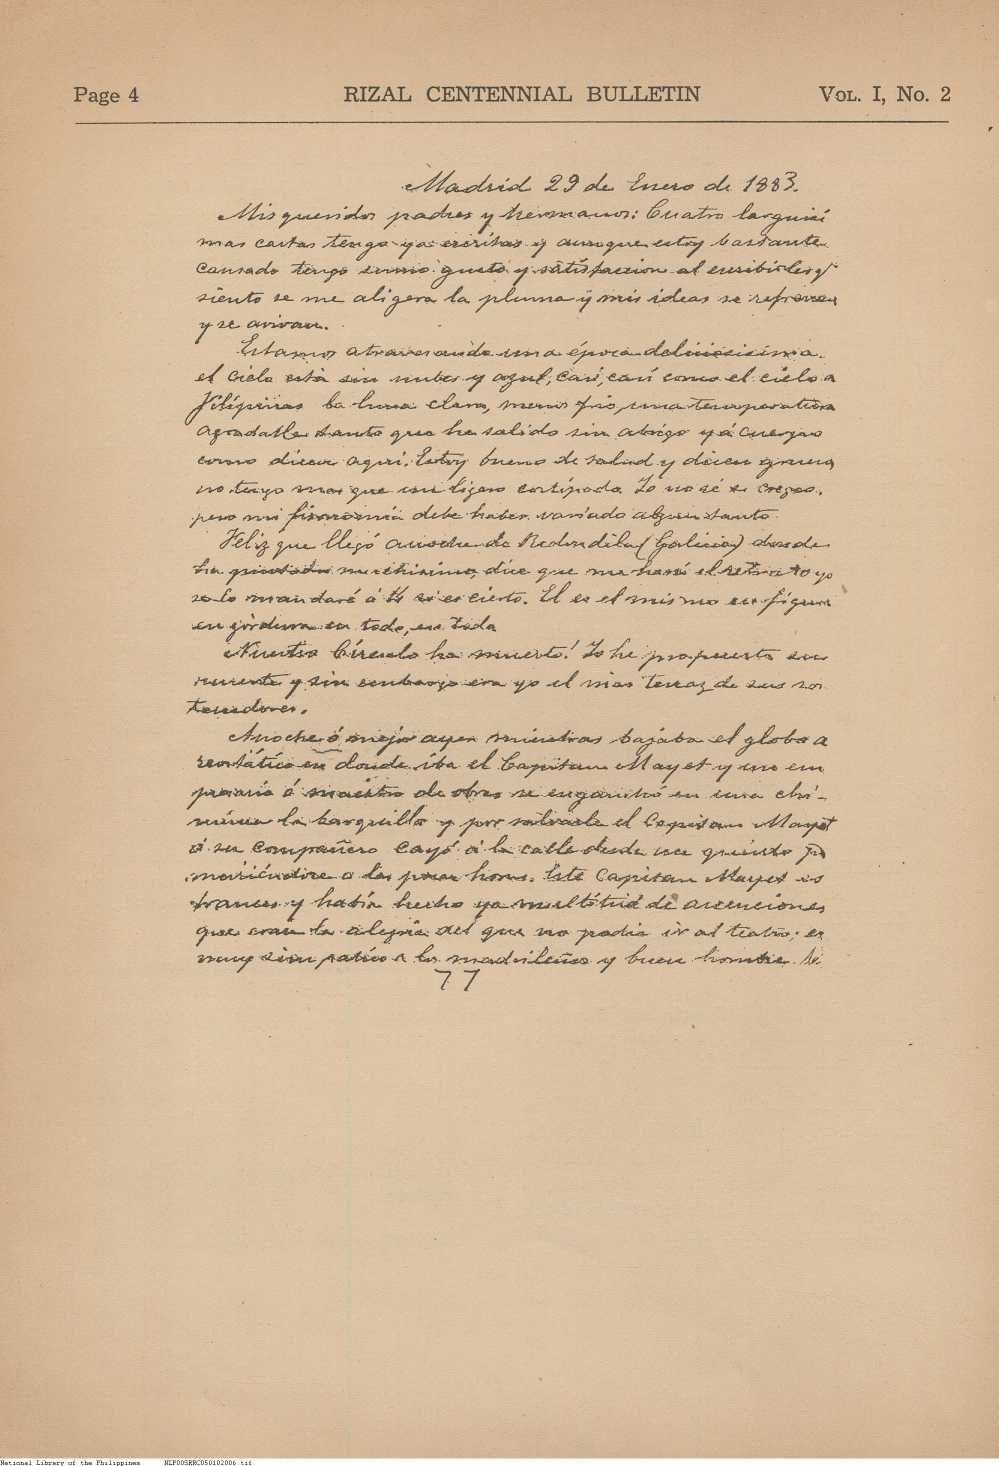 Page 4 RIZAL CENTENNIAL BULLETIN VOL. I, No. 2
Madrid 29 de Enero de 1883.
Mis queridos padres y hermanos: Cuatro larguisi
mas cartas tengo ya escritas y aunque estoy bastante
cansado tengo sumo gusto y satisfaccion al escribirles y
siento se me aligera la pluma y mis ideas se refrescan
y se avivan.
Estamos atravesando una época deliciosisima.
el cielo está sin nubes y azul, casi, casi como el cielo a
Filipinas la luna clara, menos frio, una temperatura
agradable tanto que he salido sin abrigo y á cuerpo
como dicen aqui. Estoy bueno de salud y dicen grueso,
no tengo mas que un ligero costipado. Yo no sé si crezco,
pero mi fisonomia debe haber variado algun tanto.
Feliz que llegó anoche de Redondela (Galicia) donde
ha pintado muchisimo, dice que me hará el retrato yo
se lo mandaré á VV si es cierto. El es el mismo en figura
en gordura en todo, en todo
Nuestro Círculo ha muerto! Yo he propuesto su
muerte y sin embargo era yo el mas tenaz de sus sos
tenedores.
Anoche ó mejor ayer mientras bajaba el globo a
reostático en donde iba el Capitan Mayet y un em
presario ó maestro de obras se enganchó en una chi-
menea la barquilla y por salvarle el Capitan Mayet
á su compañero cayó á la calle desde un quinto piso
muriéndose a las pocas horas. Este Capitan Mayet es
frances y habia hecho ya multitud de ascenciones
que eran la alegria del que no podia ir al teatro; es
muy simpatico a los madrileños y buen hombre.
77
National Library of the Philippines NLP00SRRC050102006.tif